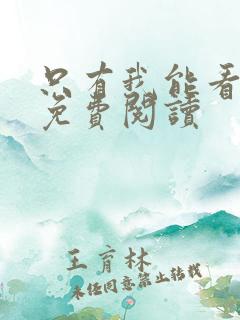 只有我能看
免費閱讀
王育林
未經同意禁止轉載